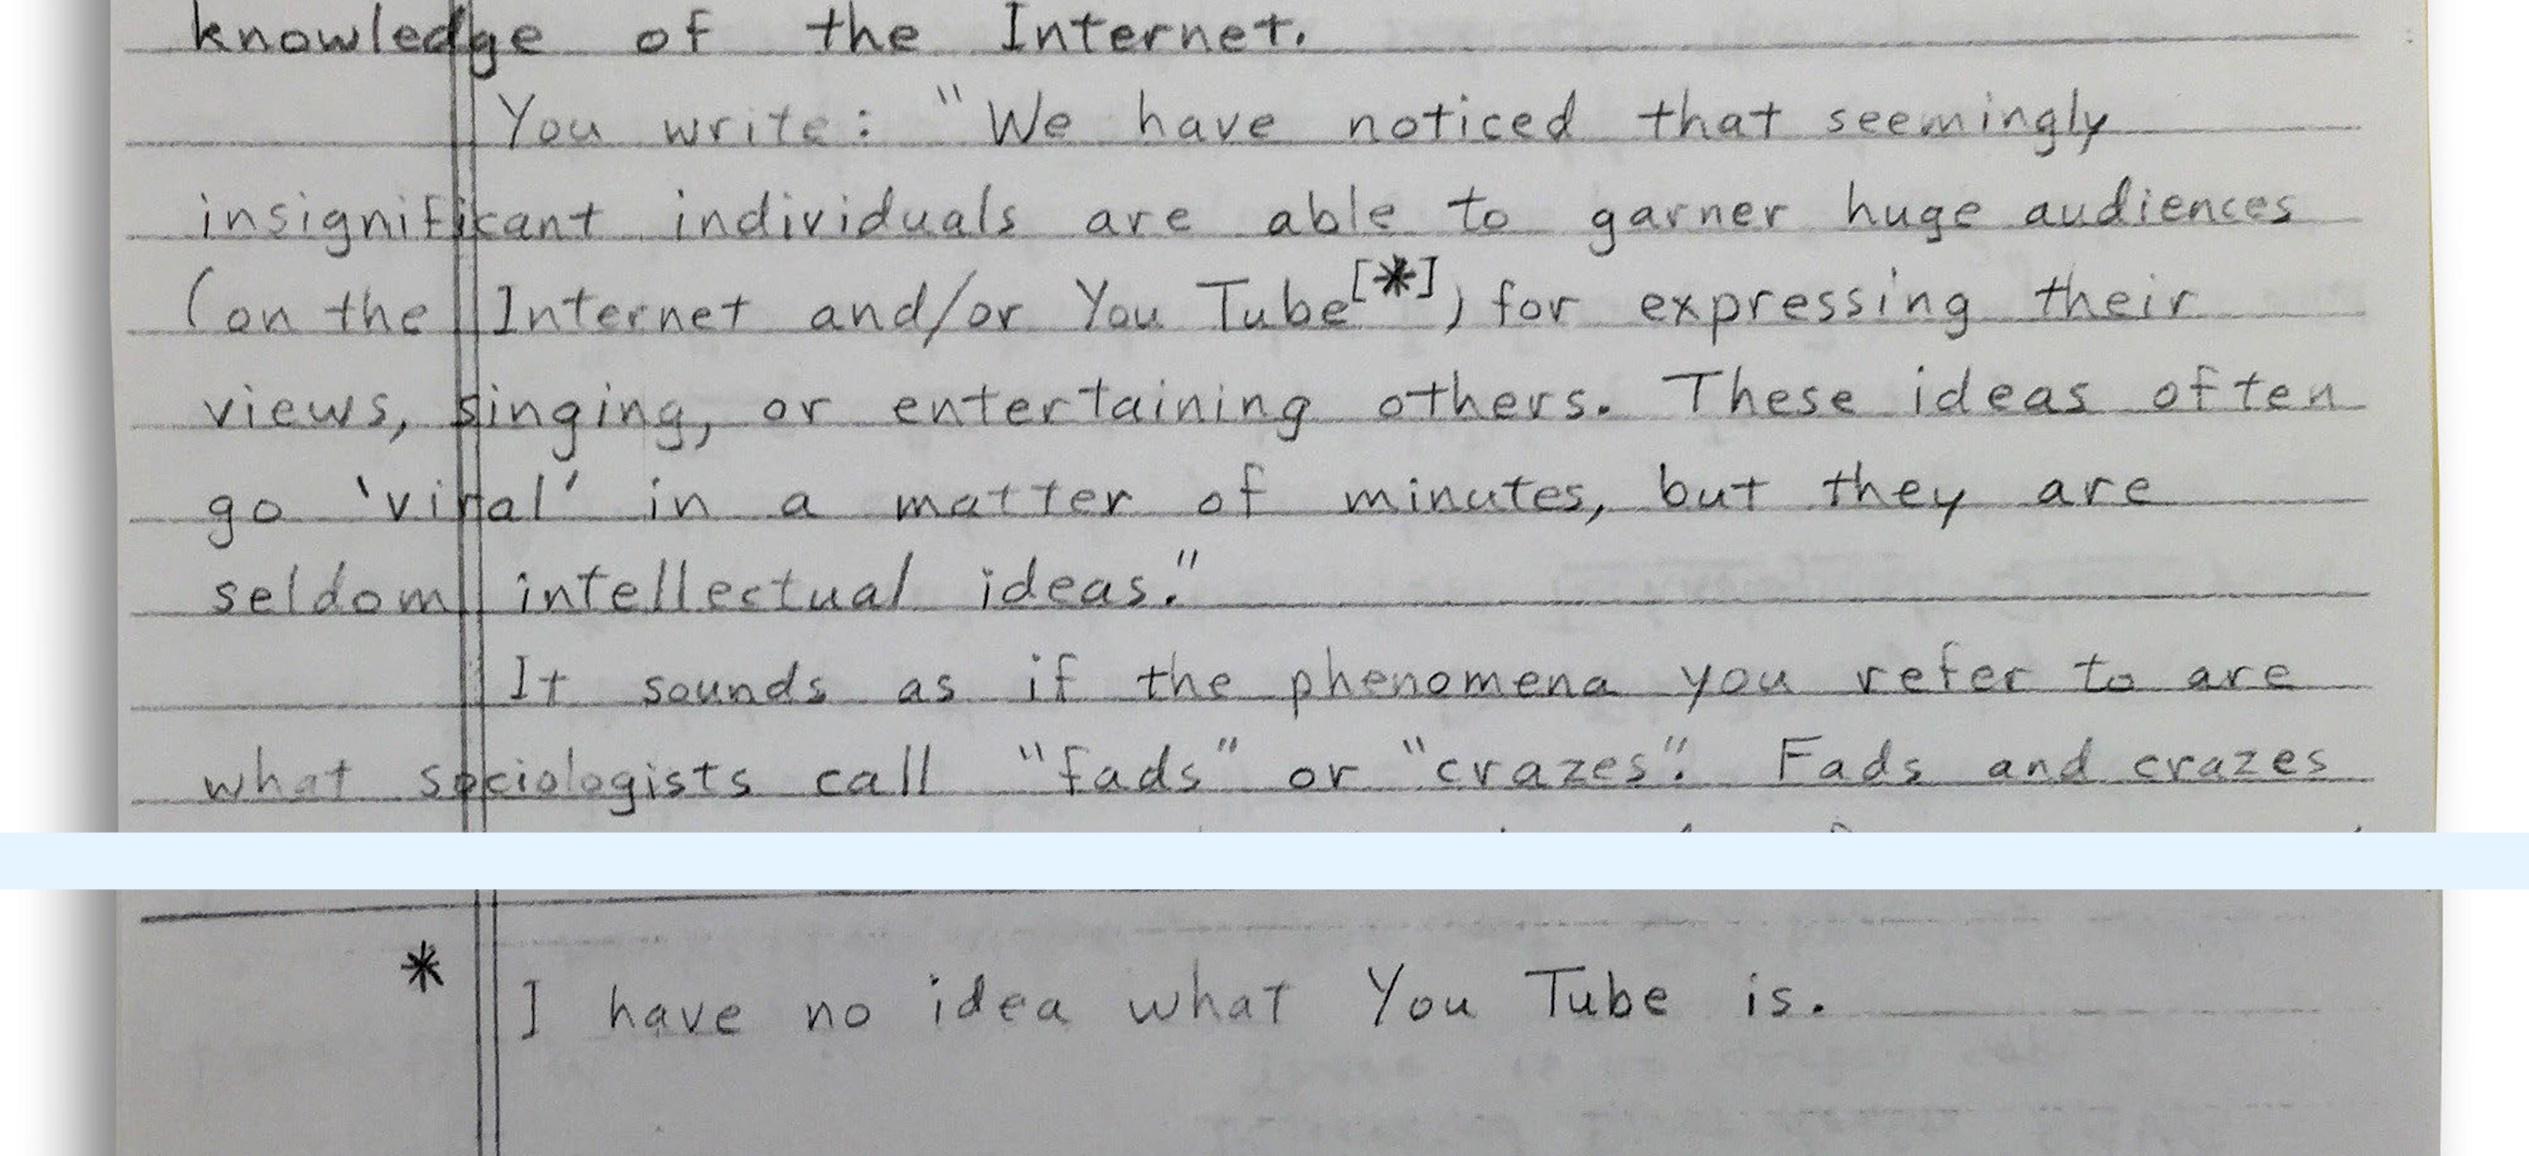 knowledge of the Internet.
You write: "We have noticed that seemingly
insignificant individuals are able to garner huge audiences
(on the Internet and/or You Tube[*]) for expressing their
views, singing, or entertaining others. These ideas often
go 'viral' in a matter of minutes, but they are
seldom intellectual ideas."
It sounds as if the phenomena you refer to are
what sociologists call "fads" or "crazes". Fads and crazes
* I have no idea what You Tube is.